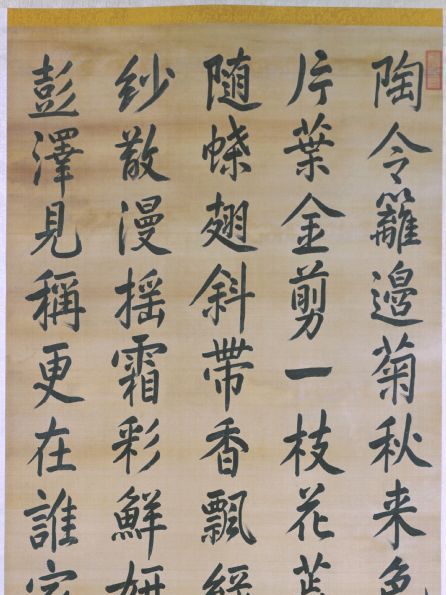 陶令籬邊菊秋来色
片葉金剪一枝花
随蝶翅斜帶香飄
紗散漫揺霜彩鮮妍
彭澤見稱更在誰家